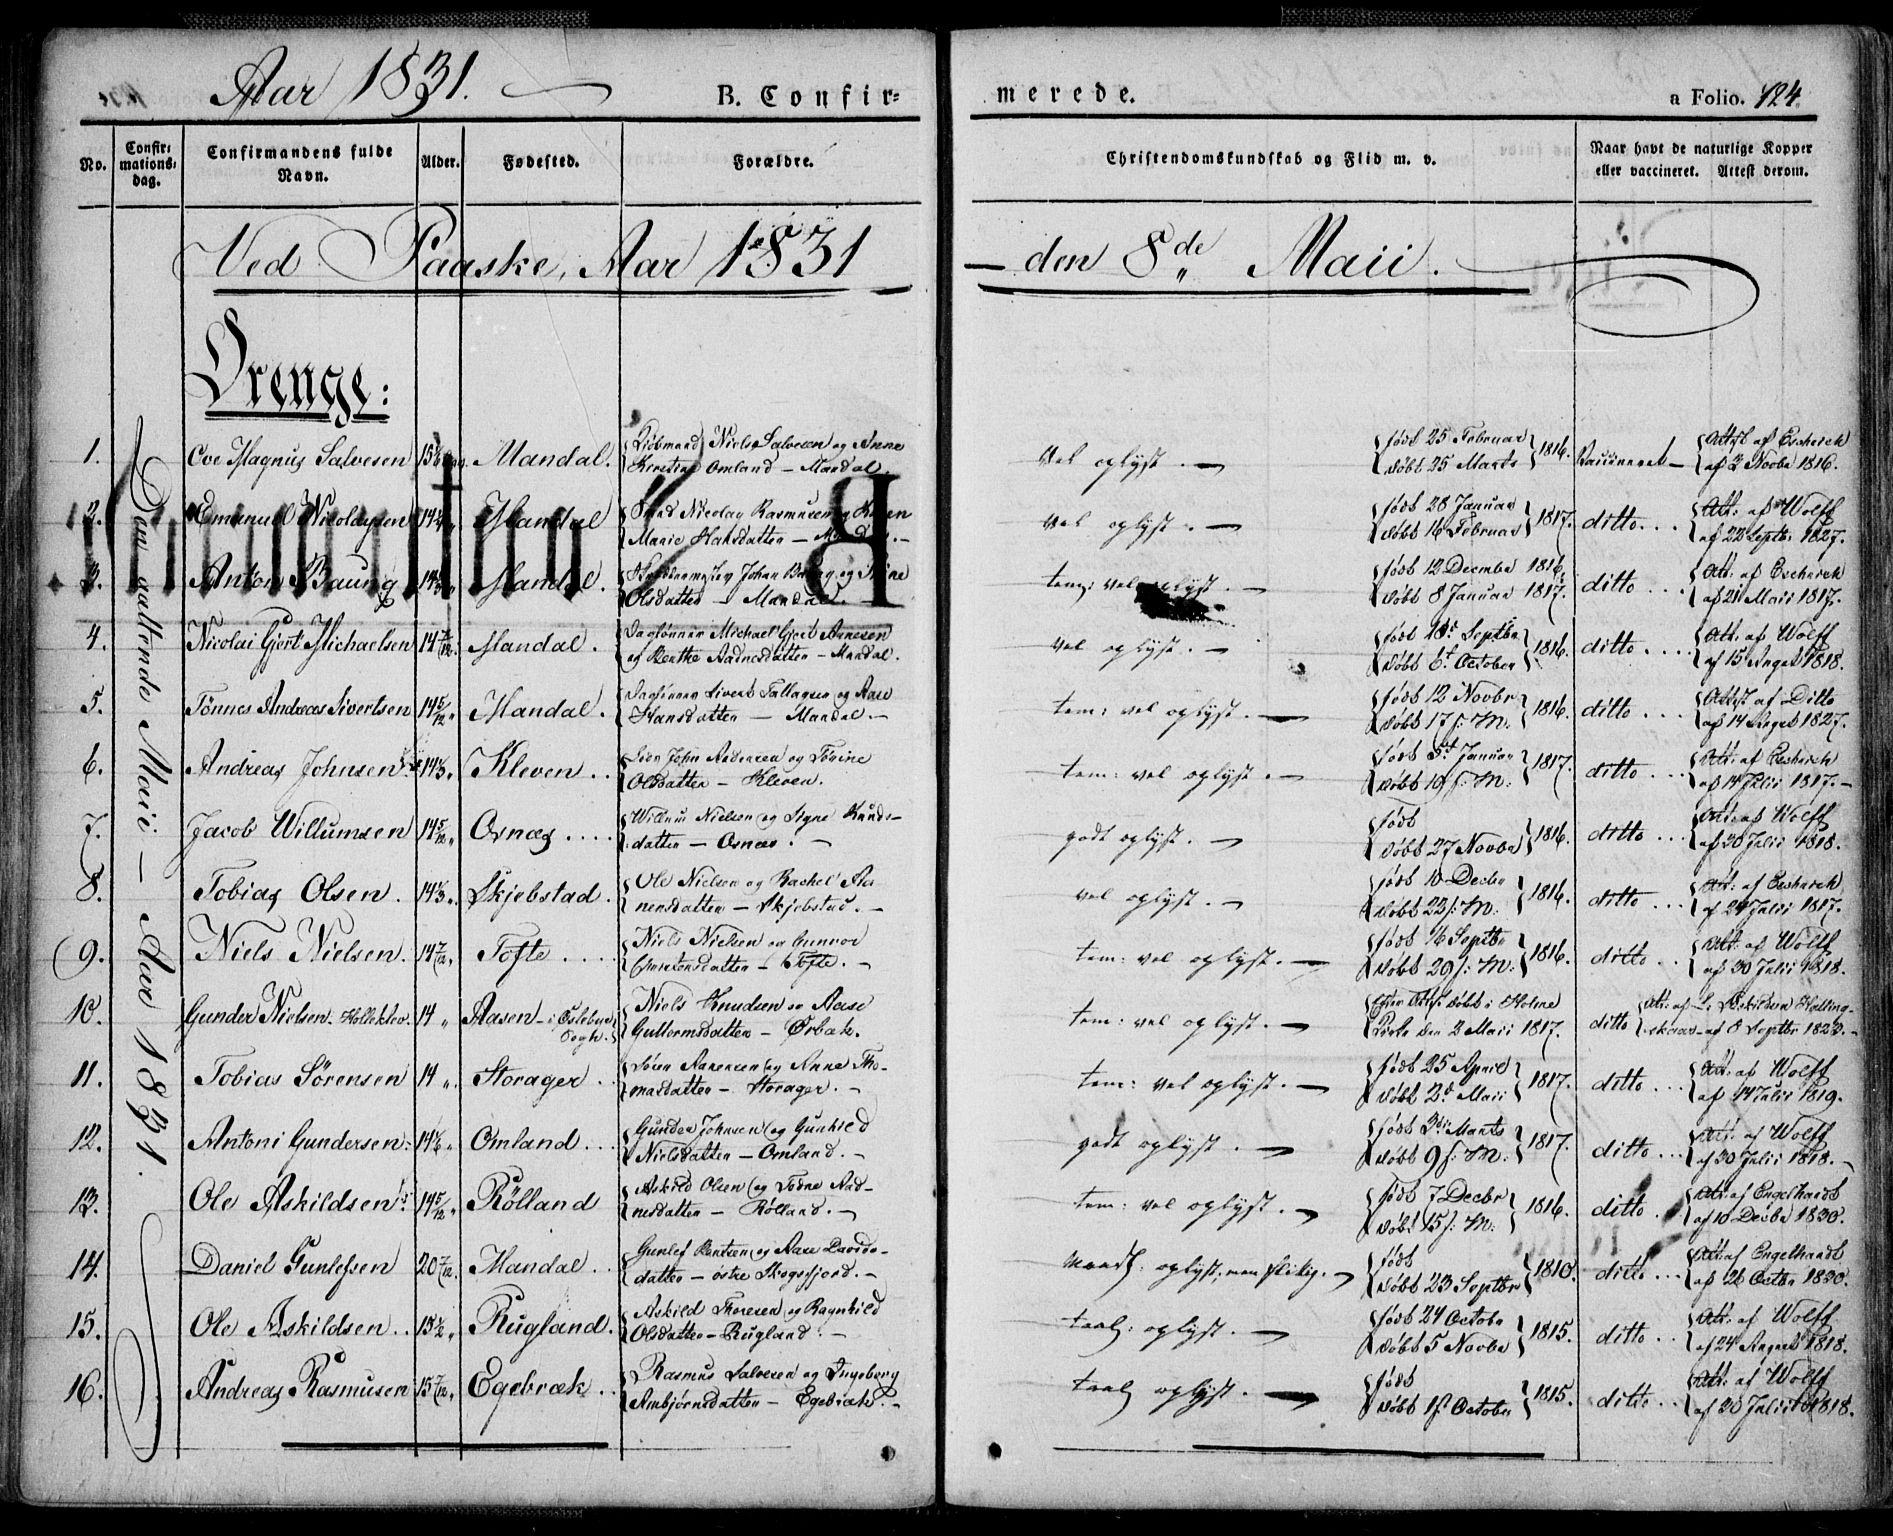 Aar 1831.
B. Confir=
merede.
a Folio. 124.
No.
Confir=
mations=
dag.
Confirmandens fulde
Navn.
Alder.
Fødested.
Forældre.
Christendomskundskab og Flid m. v.
Naar havt de naturlige Kopper
eller vaccineret. Attest derom.
Ved Paaske, Aar 1831
den 8de Maii.
Drenge:
Den ottende Maii — Aar 1831.
1. Ove Magnus Salvesen Mandal. Niels Salvesen og Anne
Kirstine Omland — Mandal.
vel oplyst. — født 25 Februar
døbt 25 Marts 1816. Vaccineret — Attest af Escherich
af 2 Novbr 1816.
2. Emanuel Nicolaysen Mandal Nicolay Rasmusen og Karen
Marie Hansdatter — Mandal. —
vel oplyst. — født 28 Januar
døbt 16 Februar 1817. ditto.. Att: af Wolff
af 22 Septbr 1827.
3. Anton Baung 14 1/3 Mandal. Johan Baung og Trine
Olsdatter — Mandal.
tem: vel oplyst. — født 12 Decembr 1816.
døbt 8 Januar 1817. ditto... Att: af Escherich
af 21 Maii 1817.
4. Nicolai Gjert Michaelsen 14 7/12. Mandal. Daglønner Michael Gjert Annesen
og Berthe Aadnesdatter — Mandal.
vel oplyst. — født 18de Septbr
døbt 6t October 1816. ditto.... Att: af Wolff
af 15 August 1818.
5. Tönnes Andreas Sivertsen 14 5/12 Mandal. Daglønner Sivert Tallagsen og Aase
Hansdatter — Mandal. —
tem: vel oplyst. — født 12 Novbr
døbt 17 s: M. 1816. ditto... Attest af Ditto
af 14 August 1827.
6. Andreas Johnsen 14 1/3 Kleven.. John Andersen og Torine
Olsdatter — Kleven.
tem: vel oplyst. — født 5t Januar
døbt 19 s: M: 1817. ditto... Att: af Escherich
af 14 Julii 1817. —
7. Jacob Willumsen 14 5/12 Osnæs.... Willum Nielsen og Signe Knuds-
datter — Osnæs. —
godt oplyst. — født
døbt 27 Novbr 1816. ditto... Att: af Wolff
af 30 Julii 1818.
8. Tobias Olsen. 14 1/3. Skjebstad. Ole Nielsen og Rachel Aa-
nensdatter — Skjebstad. —
vel oplyst. — født 10 Decbr
døbt 22 s: M: 1816. ditto... Att: af Escherich
af 24 Julii 1817.
9. Niels Nielsen. 14 7/12. Tofte.... Niels Nielsen og Gunvor
— Tofte. —
tem: vel oplyst. — født 16 Septbr
døbt 29 s: M: 1816. ditto.. Att: af Wolff
af 30 Julii 1818.
10. Gunder Nielsen. 14 „ Aasen — i Øslebøe
Sogn. Niels Knudsen og Aase
Guttormsdatter — Ørbæk.
tem: vel oplyst. — døbt i Holme
Kirke den 2 Maii 1817. ditto
11. Tobias Sörensen 14 „. Storager.. Sören Aanensen og Anne Tho-
masdatter — Storager. —
tem: vel oplyst. — født 25 April
døbt 2d Maii 1817. ditto... Att: af Wolff
af 14 Julii 1819.
12. Antoni Gundersen: 14 1/6 „ Omland... Gunder Johnsen og Gunhild
Nielsdatter — Omland. —
godt oplyst. — født 3di Marts
døbt 9 s: M: 1817. ditto... Att: af Wolff
af 30 Julii 1818. —
13. Ole Askildsen 14 5/12 „ Rölland Askild Olsen og Todne Aad-
nesdatter — Rölland. —
tem: vel oplyst. — født 7 Decbr
døbt 15 s: M: 1816. ditto. Att: af Engelhardt
af 10 Decbr 1830.
14. Daniel Gunlefsen 20 7/12. Mandal.. Gunlef Berntsen og Aase Davids-
datter — østre Skogsfjord. —
oplyst, men flitig. — født
døbt 23 Septbr 1810. ditto... Att: af Engelhardt
af 26 Octbr 1830.
15. Ole Askildsen.. 15 1/2 „ Rugland. Askild Thoresen og Ragnhild
Olsdatter — Rugland. —
taal: oplyst. — født 24 Octobr
døbt 5 Novbr 1815. ditto.. Att: af Wolff
af 24 August 1818.
16. Andreas Rasmusen 15 7/12 „ Egebræk.. Rasmus Salvesen og Ingeborg
Ambjörnsdatter — Egebræk. —
taal: oplyst. — født
døbt 1st October 1815. ditto... Att: af Wolff
af 30 Julii 1818.